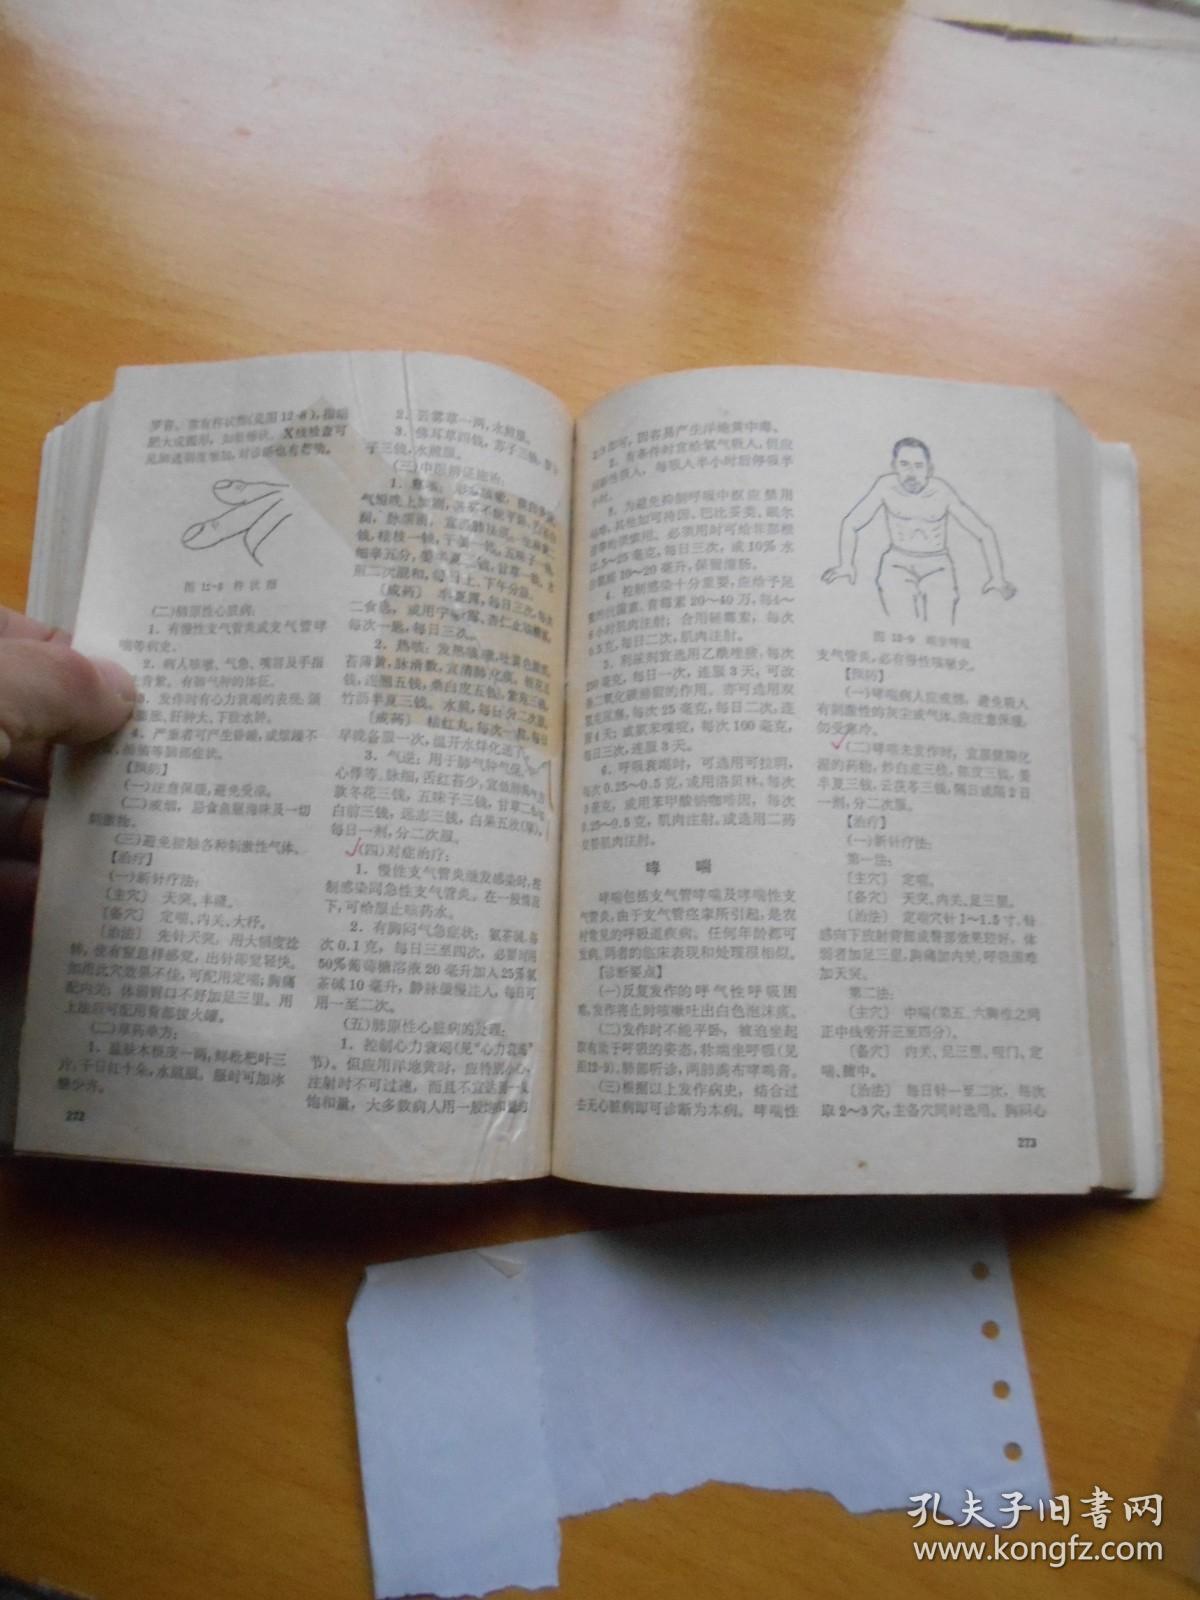 罗音。常有杵状指(见图12-8),指端
肥大成圆形,如鼓槌状。X线检查可
见肺透明度增加,对诊断也有帮助。
图 12-8 杵状指
(二)肺原性心脏病:
1. 有慢性支气管炎或支气管哮
喘等病史。
2. 病人咳嗽、气急、嘴唇及手指
青紫。有肺气肿的体征。
发作时有心力衰竭的表现:颈
怒胀,肝肿大,下肢水肿。
4. 严重者可产生昏睡,或烦躁不
抽搐等脑部症状。
【预防】
(一)注意保暖,避免受凉。
(二)戒烟,忌食鱼腥海味及一切
刺激物。
(三)避免接触各种刺激性气体。
【治疗】
(一)新针疗法:
〔主穴〕 天突、丰隆。
〔备穴〕 定喘、内关、大杼。
〔治法〕 先针天突,用大幅度捻
转,使有窒息样感觉,出针即觉轻快。
如用此穴效果不佳,可配用定喘;胸痛
配内关;体弱胃口不好加足三里。用
上法后可配用背部拔火罐。
(二)草药单方:
1. 盐肤木根皮一两,鲜枇杷叶三
片,千日红十朵,水煎服。服时可加冰
糖少许。
272
2. 一两,水煎服。
3. 佛耳草四钱,苏子三钱,
子三钱,水煎服。
(三)中医辨证施治:
钱,桂枝一钱,干姜一钱,五味子一钱,
细辛五分,姜半夏三钱,甘草一钱。水
用二次混和,每日上、下午分服。
每次一匙,每日三次。
2. 热咳:发热咳嗽,吐黄色
苔薄黄,脉滑数,宜清肺化痰。
钱,连翘五钱,桑白皮五钱,紫菀三钱,
竹沥半夏三钱。水煎,每日分二次服。
〔成药〕 桔红丸,每次一粒,每日
早晚各服一次,温开水烊化送下。
3. 气逆:用于肺气肿气促,
心悸等。脉细,舌红苔少,宜
款冬花三钱,五味子三钱,甘草二钱,
白前三钱,远志三钱,白果五枚(
每日一剂,分二次服。
(四)对症治疗:
1. 慢性支气管炎继发感染时,控
制感染同急性支气管炎。在一般情况
下,可给服止咳药水。
2. 有胸闷气急症状:氨茶碱,每
次0.1克,每日三至四次,必要时用
50%葡萄糖溶液20毫升加入25%氨
茶碱10毫升,静脉缓慢注入,每日可
用一至二次。
(五)肺原性心脏病的处理:
1. 控制心力衰竭(见“心力衰竭”
节)。但应用洋地黄时,应特别小心,
注射时不可过速,而且不宜法
饱和量,大多数病人用一般饱和量的
2/3即可,因容易产生洋地黄中毒。
2. 有条件时宜给氧气吸入,但应
间歇性吸入,每吸入半小时后停吸半
小时。
3. 为避免抑制呼吸中枢应禁用
吗啡,其他如可待因、巴比妥类、眠尔
通等也须慎用。必须用时可给非那根
12.5~25毫克,每日三次,或10%水
合氯醛10~20毫升,保留灌肠。
4. 控制感染十分重要,应给予足
量的抗菌素,青霉素20~40万,每4~
6小时肌肉注射;合用链霉素,每次
0.5克,每日二次,肌肉注射。
5. 利尿剂宜选用乙酰唑胺,每次
250毫克,每日一次,连服3天,可改
善二氧化碳潴留的作用。亦可选用双
氢克尿塞,每次25毫克,每日二次,连
服4天;或氨苯喋啶,每次100毫克,
每日三次,连服3天。
6. 呼吸衰竭时,可选用可拉明,
每次0.25~0.5克,或用洛贝林,每次
3毫克,或用苯甲酸钠咖啡因,每次
0.25~0.5克,肌肉注射。或选用二药
交替肌肉注射。
哮 喘
哮喘包括支气管哮喘及哮喘性支
气管炎,由于支气管痉挛所引起,是农
村常见的呼吸道疾病。任何年龄都可
发病,两者的临床表现和处理很相似。
【诊断要点】
(一)反复发作的呼气性呼吸困
难,发作将止时咳嗽吐出白色泡沫痰。
(二)发作时不能平卧,被迫坐起
取有助于呼吸的姿态,称端坐呼吸(见
图12-9)。肺部听诊,两肺满布哮鸣音。
(三)根据以上发作病史,结合过
去无心脏病即可诊断为本病。哮喘性
图 12-9 端坐呼吸
支气管炎,必有慢性咳嗽史。
【预防】
(一)哮喘病人应戒烟,避免吸入
有刺激性的灰尘或气体,应注意保暖,
勿受寒冷。
(二)哮喘未发作时,宜服健脾化
湿的药物,炒白朮三钱,陈皮三钱,姜
半夏三钱,云茯苓三钱,隔日或隔2日
一剂,分二次服。
【治疗】
(一)新针疗法:
第一法:
〔主穴〕 定喘。
〔备穴〕 天突、内关、足三里。
〔治法〕 定喘穴针1~1.5寸,针
感向下放射背部或臀部效果较好。体
弱者加足三里,胸痛加内关,呼吸困难
加天突。
第二法:
〔主穴〕 中喘(第五、六胸椎之间
正中线旁开三至四分)。
〔备穴〕 内关、足三里、哑门、定
喘、膻中。
〔治法〕 每日针一至二次,每次
取2~3穴,主备穴同时选用。胸闷心
273
孔夫子旧书网
www.kongfz.com